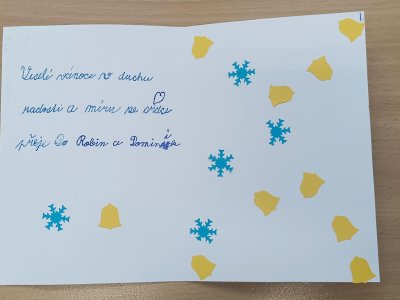 Veselé vánoce v duchu
radosti a míru ze srdce
přeje Robin a Dominika